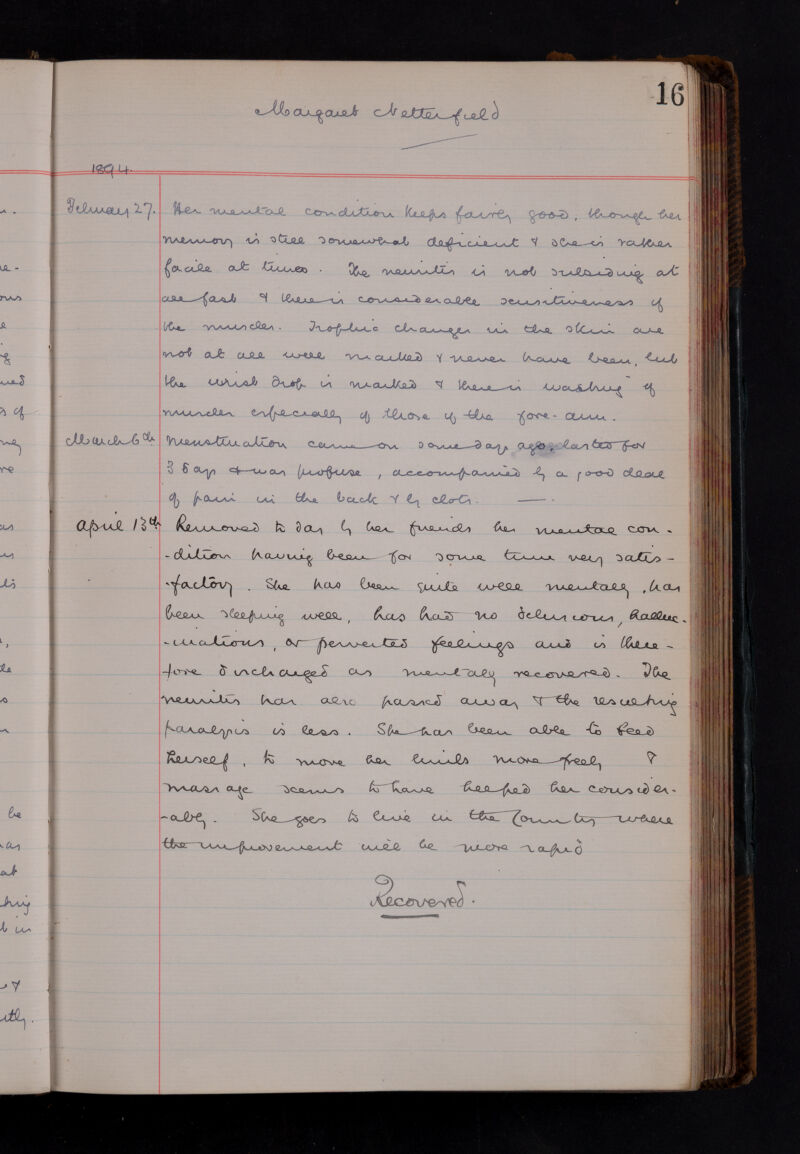 16
Margaret Netterfield
1894.
February 27. Her mental condition keeps fairly good, though her
memory is still somewhat deficient & she is rather
facile at times. The neuritis is not subsiding at
all fast & there is considerable sensitiveness of
the muscles. Trophic changes in the skin are
not at all well marked & never have been, but
the wrist drop is marked & there is washing of
muscles especially of those of the fore-arm.
March 6th Menstruation came on some days ago, lasted for
3 days & was profuse, accompanied by a good deal
of pain in the back & by clots. —.
April 13th Removed to day by her friends her mental con-
-dition having been for some time very satis-
-factory. She has been quite well mentally, has
been sleeping well, has had no delusions, halluc-
-inations, or perverted feelings and is there-
-fore discharged as mentally recovered. The
neuritis has also passed away & the resulting
paralysis is less. She has been able to feed
herself, to move her limbs more freely &
massage seems to have helped her consider-
-ably. She goes to live in the Country where
the improvement will be more rapid
Recovered.